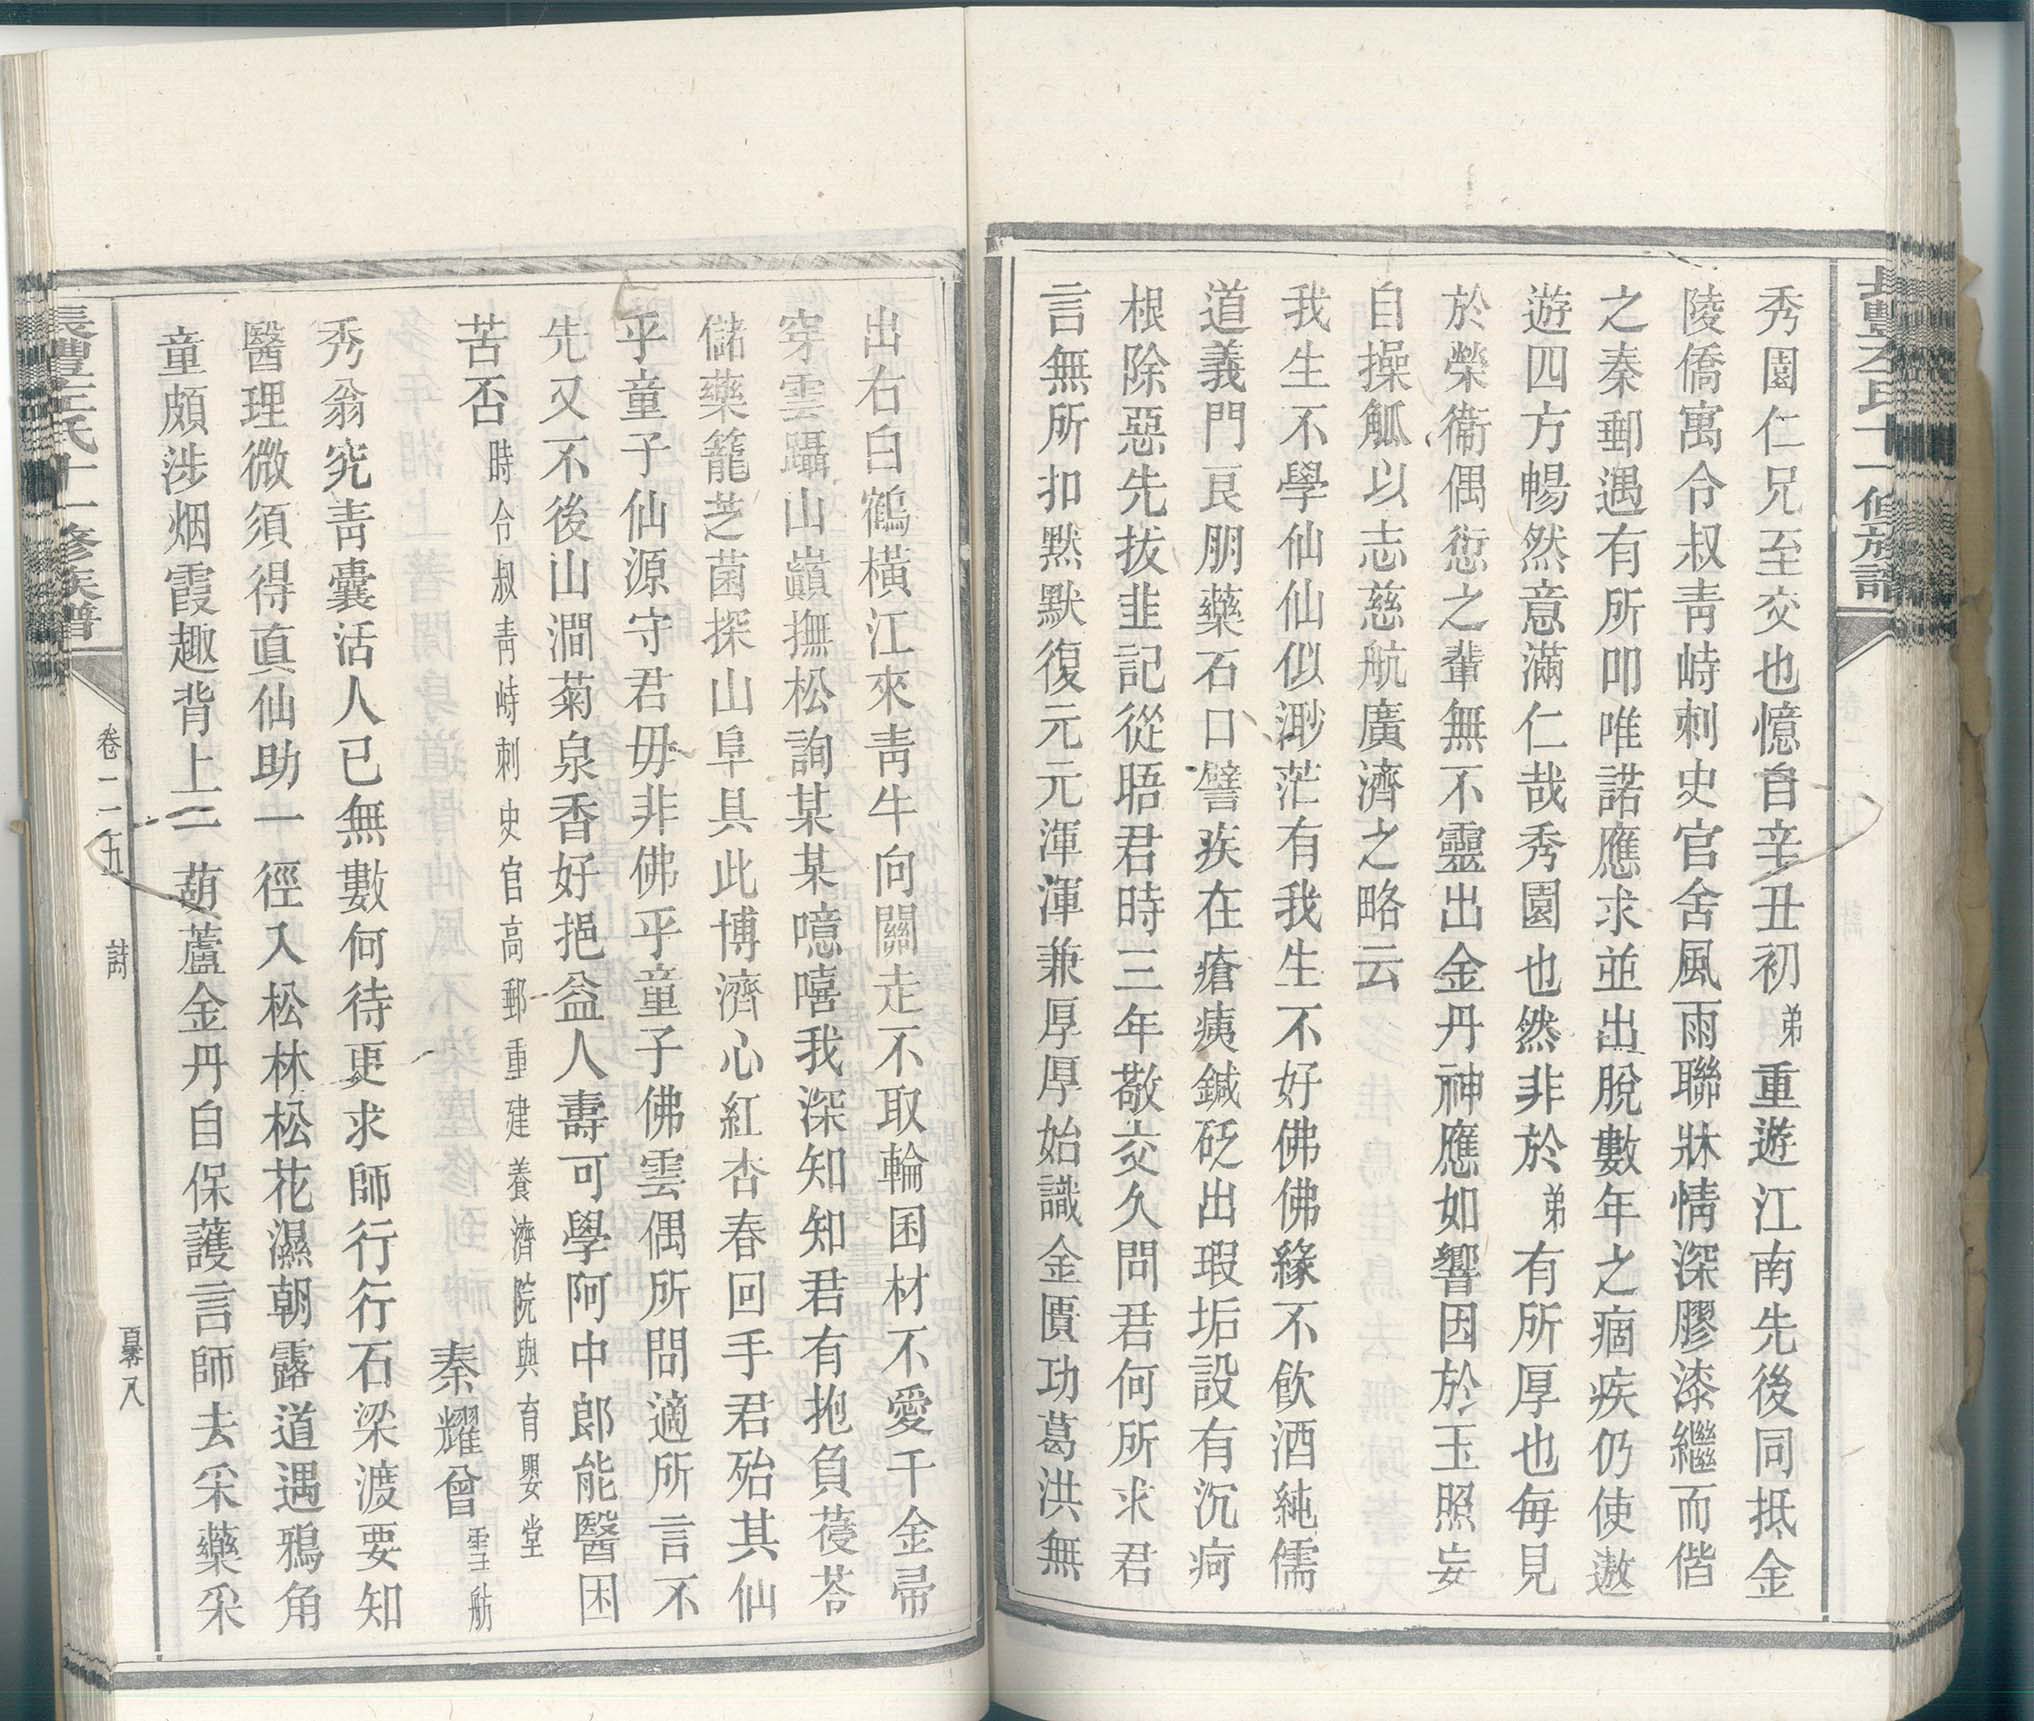 秀園仁兄至交也憶自辛丑初弟重遊江南先後同抵金
陵僑寓令叔靑峙刺史官舍風雨聯牀情深膠漆繼而偕
之秦郵遇有所叩唯諾應求並出脫數年之痼疾仍使遨
遊四方暢然意滿仁哉秀園也然非於弟有所厚也每見
於榮衞偶愆之輩無不靈出金丹神應如響因於玉照妄
自操觚以志慈航廣濟之略云
我生不學仙仙似渺茫有我生不好佛佛緣不飮酒純儒
道義門艮朋藥石口譬疾在瘡痍鍼砭出瑕垢設有沉疴
根除惡先拔韭記從晤君時三年敬交久問君何所求君
言無所扣黙默復元元渾渾兼厚厚始識金匱功葛洪無
出右白鶴橫江來靑牛向關走不取輪囷材不愛千金帚
穿雲躡山巔撫松詢某某噫嘻我深知知君有抱負蓡苓
儲藥籠芝菌探山阜具此博濟心紅杏春回手君殆其仙
乎童子仙源守君毋非佛乎童子佛雲偶所問適所言不
先又不後山澗菊泉香好挹益人壽可學阿中郎能醫困
苦否時令叔靑峙刺史官高郵重建養濟院與育嬰堂
秦耀曾雪舫
秀翁究靑囊活人已無數何待更求師行行石梁渡要知
醫理微須得眞仙助一徑入松林松花濕朝露道遇鴉角
童頗涉烟霞趣背上一葫蘆金丹自保護言師去采藥采
卷二五